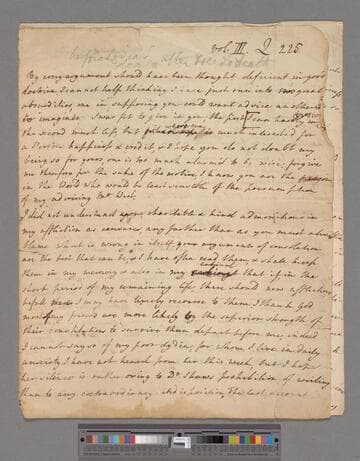 vol. III. Q 225
after
By every argument should have been thought deficient in good
doctrine I can not help thinking I have just run into two great
absurdities, one in supposing you could want advice another in
to imagine I was fit to give it you, the first I can hardly
the second must left but must interested for
a Person happiness & credit, & I hope you do not doubt my
being so for yours, one is too much alarmed to be wise; forgive
me therefore for the sake of the motive, I know you are the
in the World who would be least sensible of the presumption
of my advising
I did not understand your charitable & kind admonitions in
my affliction as censures, any further than as you must always
blame what is wrong in itself, your arguments of consolation
are the best that can be, & I have often read them, & shall keep
them in my memory & also in my that if in the
short period of my remaining life there should new afflictions
befall me I may have timely recourse to them, I thank God
most of my friends are more likely by the superior strength of
their constitutions to survive than depart before me, indeed
I cannot say so of my poor Lydia, for whom I live in daily
anxiety, I have not heard from her this week, but I hope
her silence is rather owing to Dr Shaws prohibition of writing
than to any extraordinary indisposition, the last account